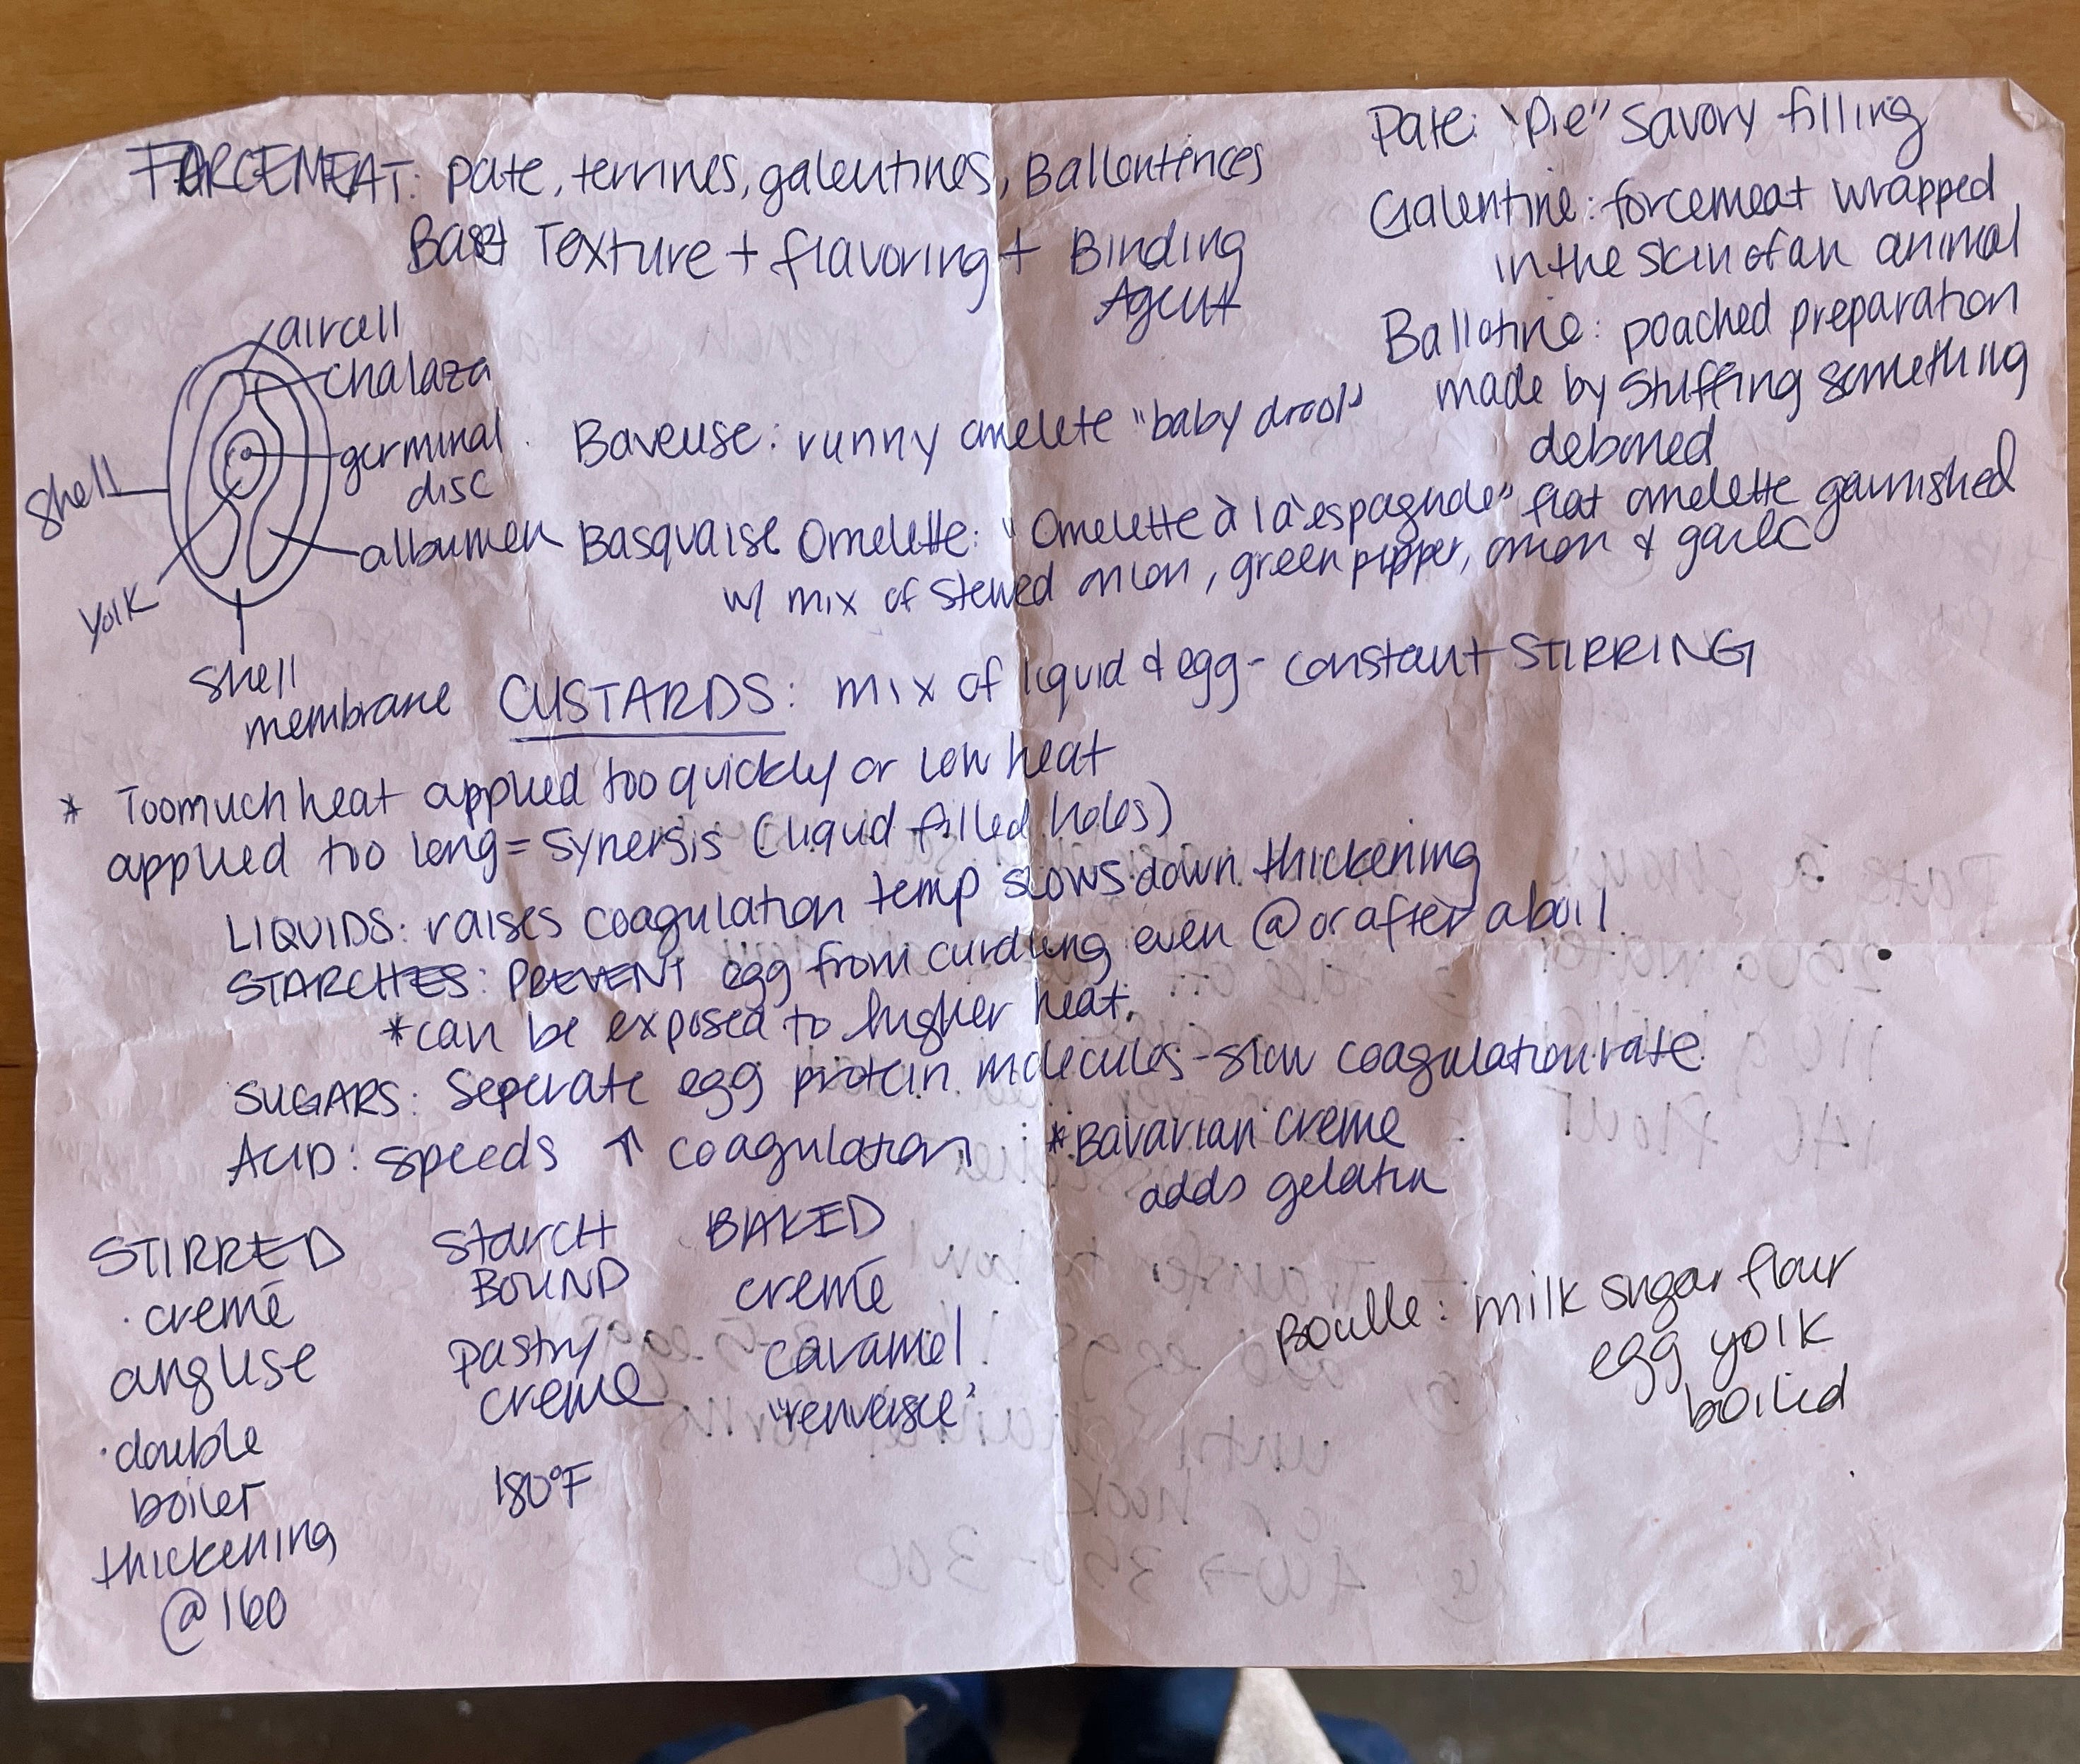 FORCEMEAT: pate, terrines, galentines, Ballontences
Base Texture + flavoring + Binding
Agent
Pate: "Pie" savory filling
Galentine: forcemeat wrapped
in the skin of an animal
Ballotine: poached preparation
made by stuffing something
deboned
aircell
chalaza
germinal
disc
albumen
shell
yolk
shell
membrane
Baveuse: runny omelete "baby drool"
Basquaise Omelette: "Omelette à la espagnole" flat omelette garnished
w/ mix of stewed onion, green pepper, onion & garlic
CUSTARDS: mix of liquid & egg - constant STIRRING
* Too much heat applied too quickly or low heat
applied too long = synersis (liquid filled holes)
LIQUIDS: raises coagulation temp slows down thickening
STARCHES: PREVENT egg from curdling even @ or after a boil
*can be exposed to higher heat.
SUGARS: Seperate egg protein molecules - slow coagulation rate
ACID: speeds ↑ coagulation
*Bavarian creme
adds gelatin
STIRRED
· creme
anglise
· double
boiler
thickening
@ 160
Starch
BOUND
pastry
creme
180°F
BAKED
creme
caramel
"renversee"
Boulle: milk sugar flour
egg yolk
boiled